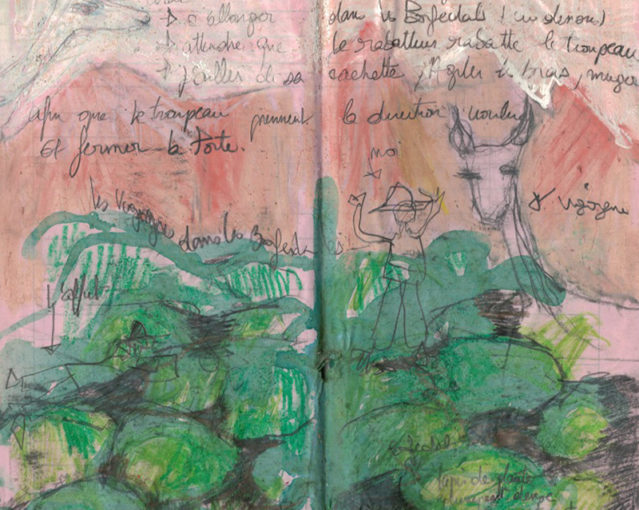 à allonger dans les Bofedals (en dehors)
attendre que le rabatteur rabatte le troupeau
jaillir de sa cachette, Agiter les bras,
afin que le troupeau prennent la direction voulue
Et fermer la Porte.
moi
Vigogne
les vigognes dans les Bofedals
l'affut
tapis de plante